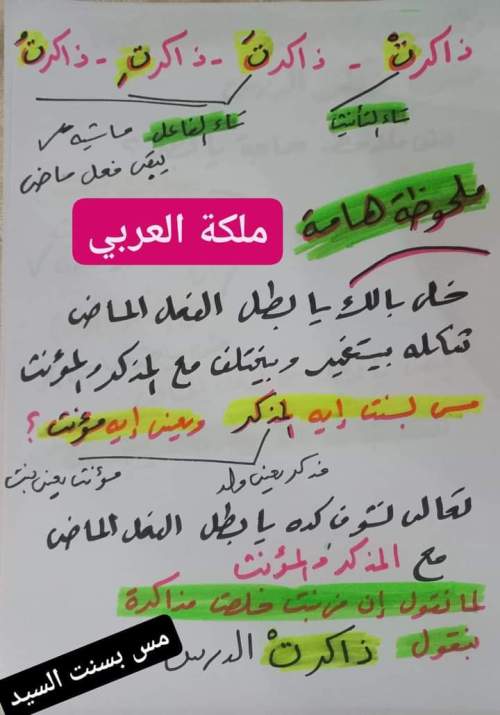 ذاكرتْ - ذاكرتَ - ذاكرتِ - ذاكرتُ
تاء التأنيث
تاء الفاعل ماشيه
يبقى فعل ماضى
ملحوظة هامة
ملكة العربي
خلى بالك يا بطل الفعل الماضى
شكله بيتغير وبيختلف مع المذكر والمؤنث
مس بسنت إيه المذكر ويعنى إيه مؤنث ؟
مذكر يعنى ولد
مؤنث يعنى بنت
تعالى نشوف كده يا بطل الفعل الماضى
مع المذكر والمؤنث
لما نقول إن بنت خلصت مذاكرة
بنقول ذاكرتْ الدرس
مس بسنت السيد